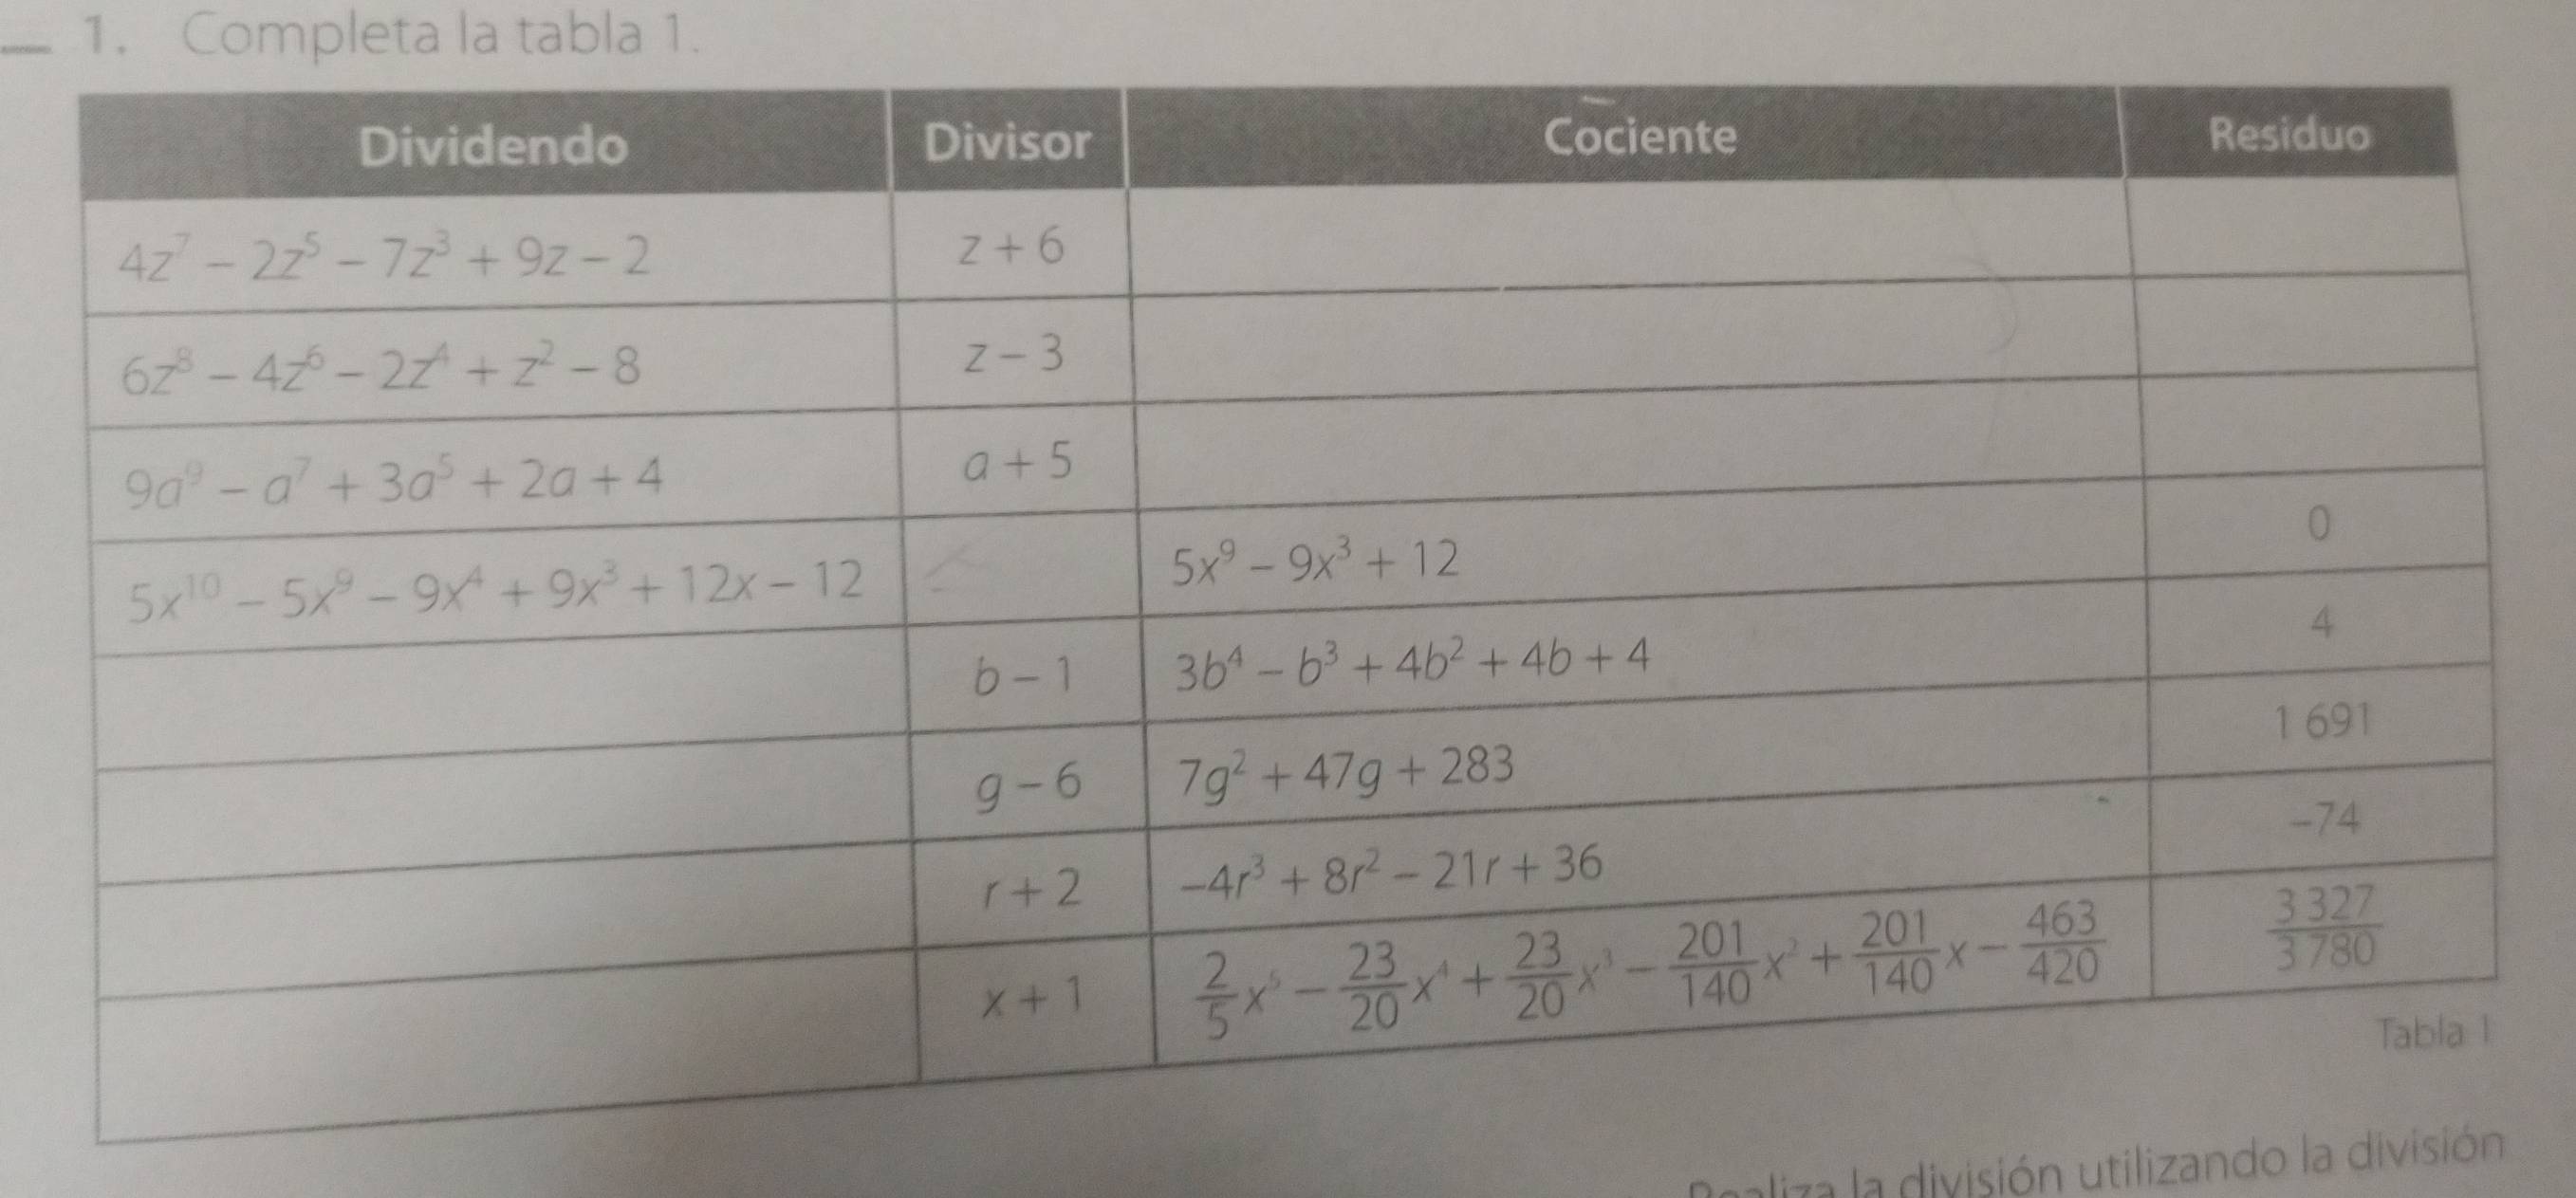 1. Completa la tabla 1.
Dividendo Divisor Cociente Residuo
4z⁷ – 2z⁵ – 7z³ + 9z – 2 z + 6
6z⁸ – 4z⁶ – 2z⁴ + z² – 8 z – 3
9a⁹ – a⁷ + 3a⁵ + 2a + 4 a + 5
5x¹⁰ – 5x⁹ – 9x⁴ + 9x³ + 12x – 12 5x⁹ – 9x³ + 12 0
b – 1 3b⁴ – b³ + 4b² + 4b + 4 4
g – 6 7g² + 47g + 283 1 691
r + 2 –4r³ + 8r² – 21r + 36 –74
x + 1 2/5 x⁵ – 23/20 x⁴ + 23/20 x³ – 201/140 x² + 201/140 x – 463/420 3 327/3 780
Tabla 1
Realiza la división utilizando la división